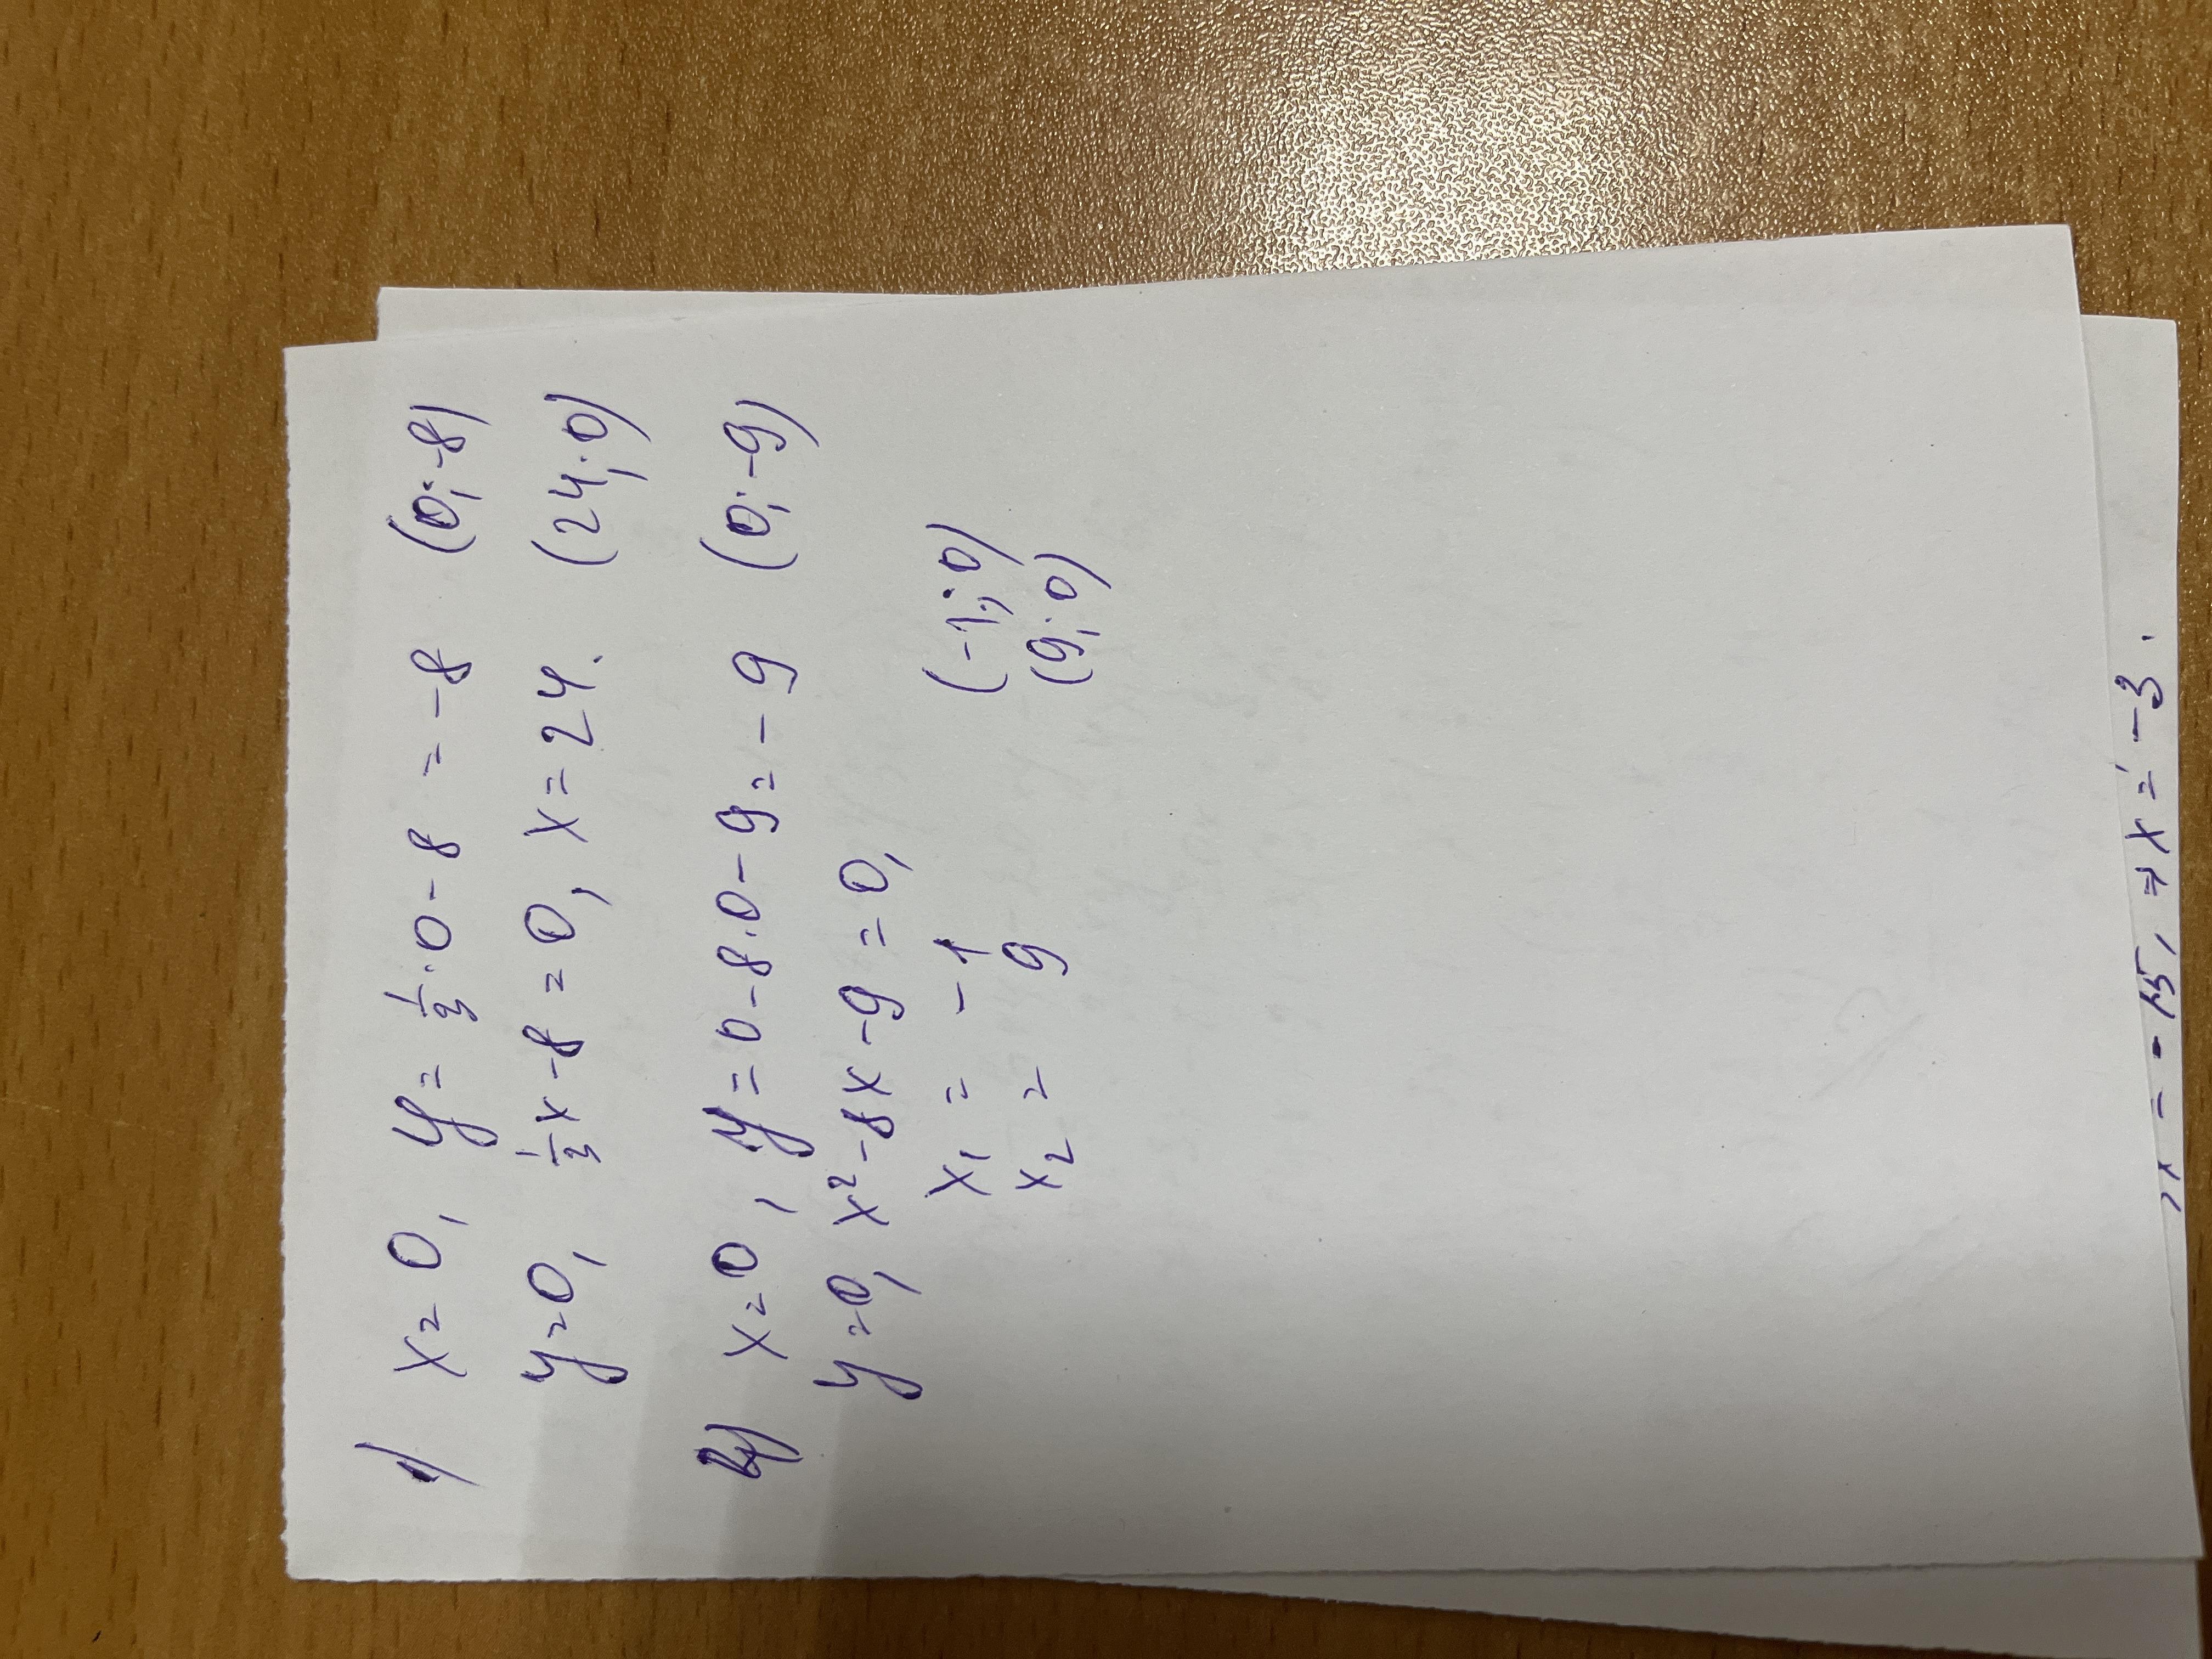 1) x = 0, y = 1/3 · 0 - 8 = -8 (0; -8)
y = 0, 1/3 x - 8 = 0, x = 24. (24; 0)
2) x = 0, y = 0 - 8 · 0 - 9 = -9 (0; -9)
y = 0, x² - 8x - 9 = 0,
x₁ = -1 (-1; 0)
x₂ = 9 (9; 0)
= -15, ⇒ x = -3.